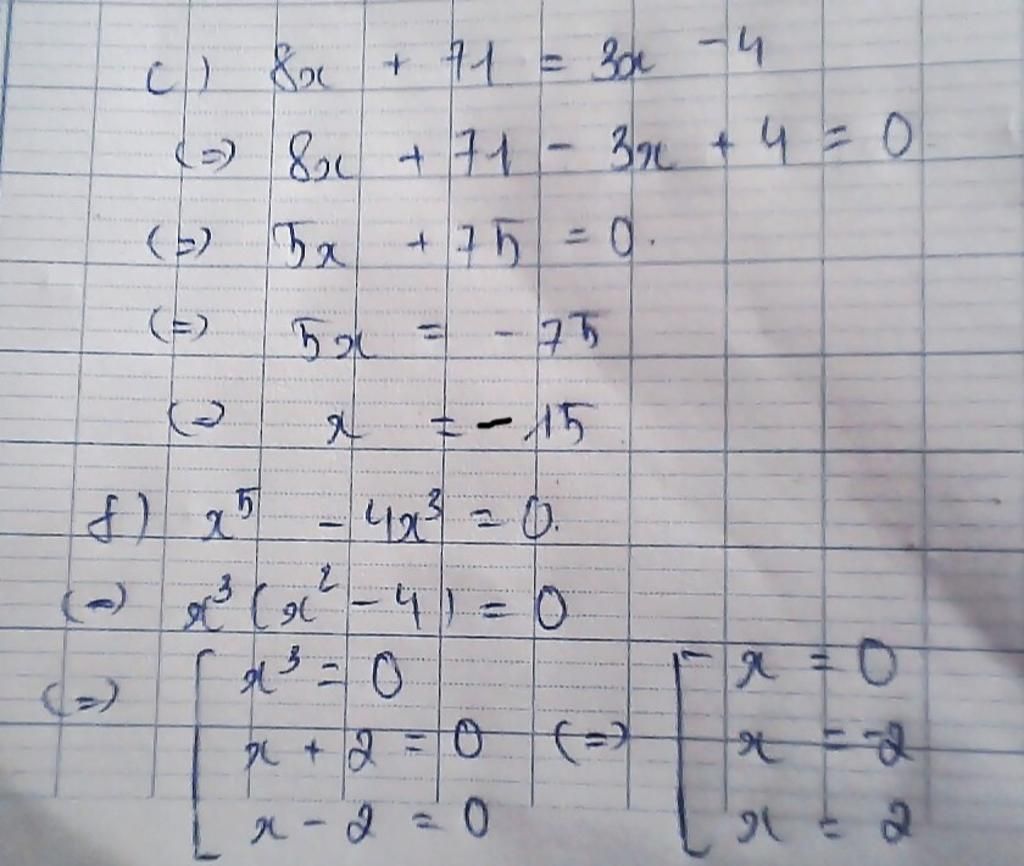 c) 8x + 71 = 3x - 4
(=) 8x + 71 - 3x + 4 = 0
(=) 5x + 75 = 0.
(=) 5x = - 75
(=) x = - 15
f) x⁵ - 4x³ = 0.
(=) x³ (x² - 4) = 0
(=) [ x³ = 0 (=) [ x = 0
x + 2 = 0 x = -2
x - 2 = 0 x = 2